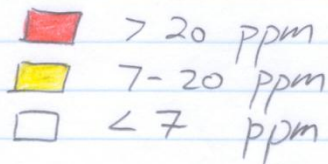 > 20 ppm
7-20 ppm
< 7 ppm